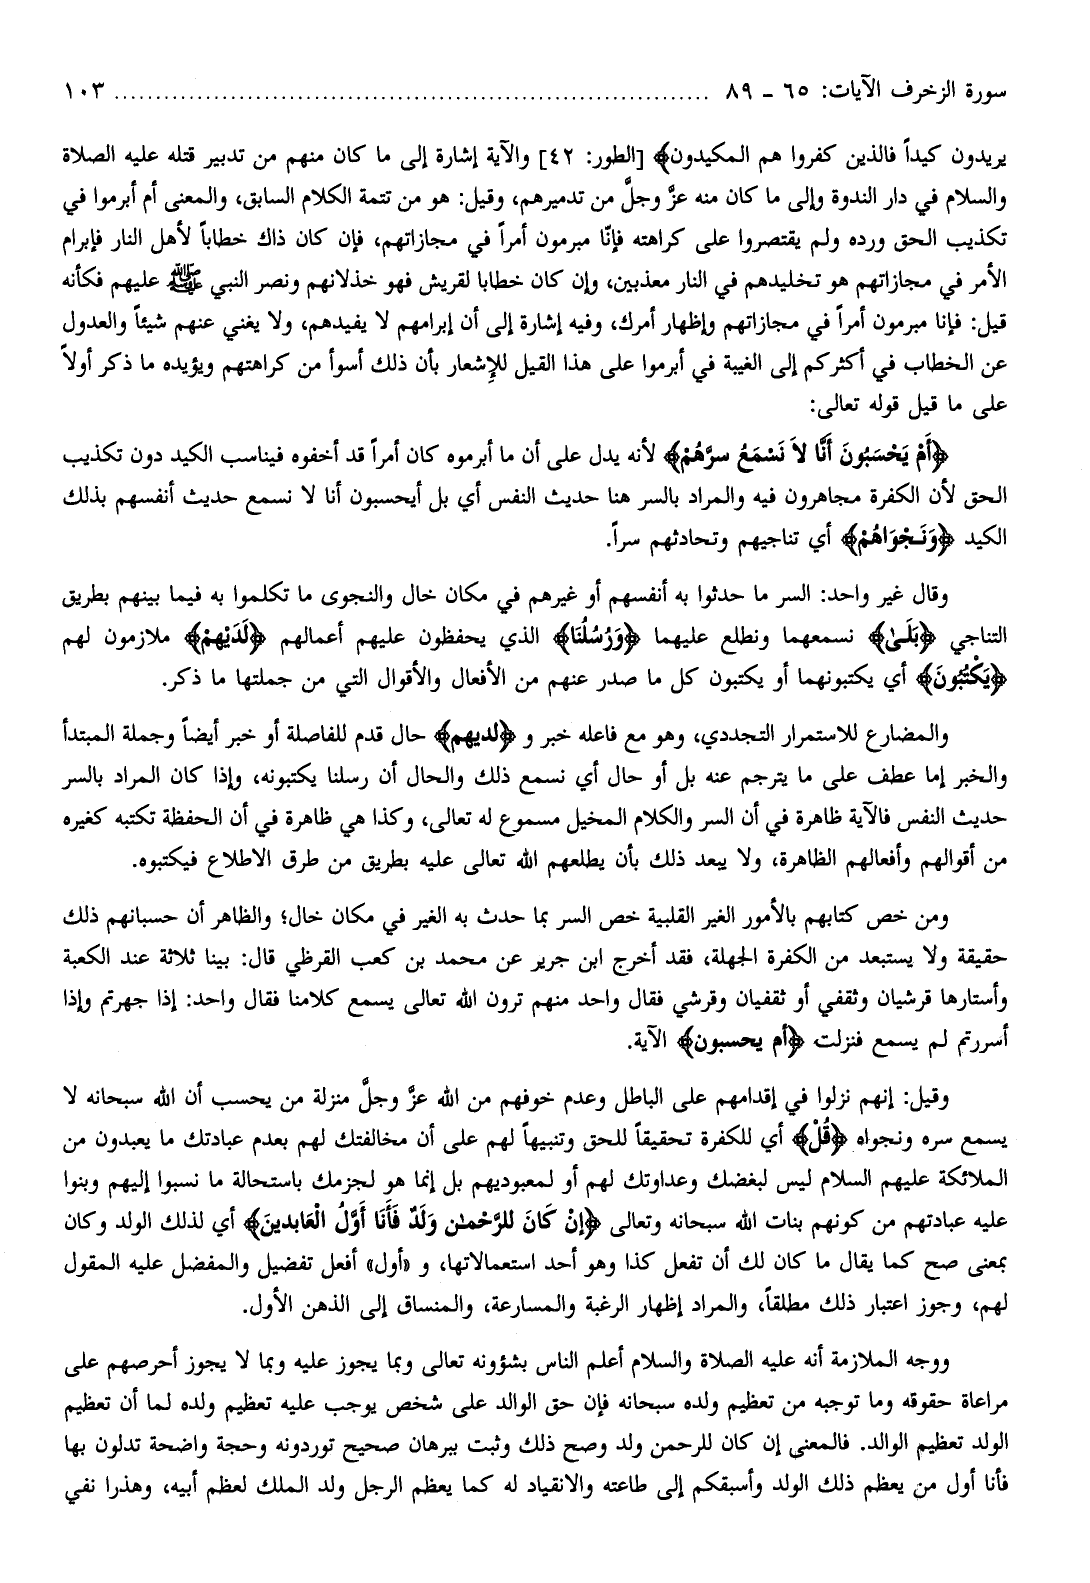 سورة الزخرف الآيات: ٦٥ ـ ٨٩ ........................................................................ ١٠٣
يريدون كيداً فالذين كفروا هم المكيدون﴾ [الطور: ٤٢] والآية إشارة إلى ما كان منهم من تدبير قتله عليه الصلاة
والسلام في دار الندوة وإلى ما كان منه عزَّ وجلَّ من تدميرهم، وقيل: هو من تتمة الكلام السابق، والمعنى أم أبرموا في
تكذيب الحق ورده ولم يقتصروا على كراهته فإنّا مبرمون أمراً في مجازاتهم، فإن كان ذاك خطاباً لأهل النار فإبرام
الأمر في مجازاتهم هو تخليدهم في النار معذبين، وإن كان خطابا لقريش فهو خذلانهم ونصر النبي ﷺ عليهم فكأنه
قيل: فإنا مبرمون أمراً في مجازاتهم وإظهار أمرك، وفيه إشارة إلى أن إبرامهم لا يفيدهم، ولا يغني عنهم شيئاً والعدول
عن الخطاب في أكثركم إلى الغيبة في أبرموا على هذا القيل للإشعار بأن ذلك أسوأ من كراهتهم ويؤيده ما ذكر أولاً
على ما قيل قوله تعالى:
﴿أَمْ يَحْسَبُونَ أَنَّا لاَ نَسْمَعُ سرَّهُمْ﴾ لأنه يدل على أن ما أبرموه كان أمراً قد أخفوه فيناسب الكيد دون تكذيب
الحق لأن الكفرة مجاهرون فيه والمراد بالسر هنا حديث النفس أي بل أيحسبون أنا لا نسمع حديث أنفسهم بذلك
الكيد ﴿وَنَجْوَاهُمْ﴾ أي تناجيهم وتحادثهم سراً.
وقال غير واحد: السر ما حدثوا به أنفسهم أو غيرهم في مكان خال والنجوى ما تكلموا به فيما بينهم بطريق
التناجي ﴿بَلَىٰ﴾ نسمعهما ونطلع عليهما ﴿وَرُسُلُنَا﴾ الذي يحفظون عليهم أعمالهم ﴿لَدَيْهِمْ﴾ ملازمون لهم
﴿يَكْتُبُونَ﴾ أي يكتبونهما أو يكتبون كل ما صدر عنهم من الأفعال والأقوال التي من جملتها ما ذكر.
والمضارع للاستمرار التجددي، وهو مع فاعله خبر و ﴿لديهم﴾ حال قدم للفاصلة أو خبر أيضاً وجملة المبتدأ
والخبر إما عطف على ما يترجم عنه بل أو حال أي نسمع ذلك والحال أن رسلنا يكتبونه، وإذا كان المراد بالسر
حديث النفس فالآية ظاهرة في أن السر والكلام المخيل مسموع له تعالى، وكذا هي ظاهرة في أن الحفظة تكتبه كغيره
من أقوالهم وأفعالهم الظاهرة، ولا يبعد ذلك بأن يطلعهم الله تعالى عليه بطريق من طرق الاطلاع فيكتبوه.
ومن خص كتابهم بالأمور الغير القلبية خص السر بما حدث به الغير في مكان خال؛ والظاهر أن حسبانهم ذلك
حقيقة ولا يستبعد من الكفرة الجهلة، فقد أخرج ابن جرير عن محمد بن كعب القرظي قال: بينا ثلاثة عند الكعبة
وأستارها قرشيان وثقفي أو ثقفيان وقرشي فقال واحد منهم ترون الله تعالى يسمع كلامنا فقال واحد: إذا جهرتم وإذا
أسررتم لم يسمع فنزلت ﴿أم يحسبون﴾ الآية.
وقيل: إنهم نزلوا في إقدامهم على الباطل وعدم خوفهم من الله عزَّ وجلَّ منزلة من يحسب أن الله سبحانه لا
يسمع سره ونجواه ﴿قُلْ﴾ أي للكفرة تحقيقاً للحق وتنبيهاً لهم على أن مخالفتك لهم بعدم عبادتك ما يعبدون من
الملائكة عليهم السلام ليس لبغضك وعداوتك لهم أو لمعبوديهم بل إنما هو لجزمك باستحالة ما نسبوا إليهم وبنوا
عليه عبادتهم من كونهم بنات الله سبحانه وتعالى ﴿إنْ كَانَ للرَّحْمٰن وَلَدٌ فَأَنَا أَوَّلُ الْعَابدينَ﴾ أي لذلك الولد وكان
بمعنى صح كما يقال ما كان لك أن تفعل كذا وهو أحد استعمالاتها، و «أول» أفعل تفضيل والمفضل عليه المقول
لهم، وجوز اعتبار ذلك مطلقاً، والمراد إظهار الرغبة والمسارعة، والمنساق إلى الذهن الأول.
ووجه الملازمة أنه عليه الصلاة والسلام أعلم الناس بشؤونه تعالى وبما يجوز عليه وبما لا يجوز أحرصهم على
مراعاة حقوقه وما توجبه من تعظيم ولده سبحانه فإن حق الوالد على شخص يوجب عليه تعظيم ولده لما أن تعظيم
الولد تعظيم الوالد. فالمعنى إن كان للرحمن ولد وصح ذلك وثبت ببرهان صحيح توردونه وحجة واضحة تدلون بها
فأنا أول من يعظم ذلك الولد وأسبقكم إلى طاعته والانقياد له كما يعظم الرجل ولد الملك لعظم أبيه، وهذرا نفي